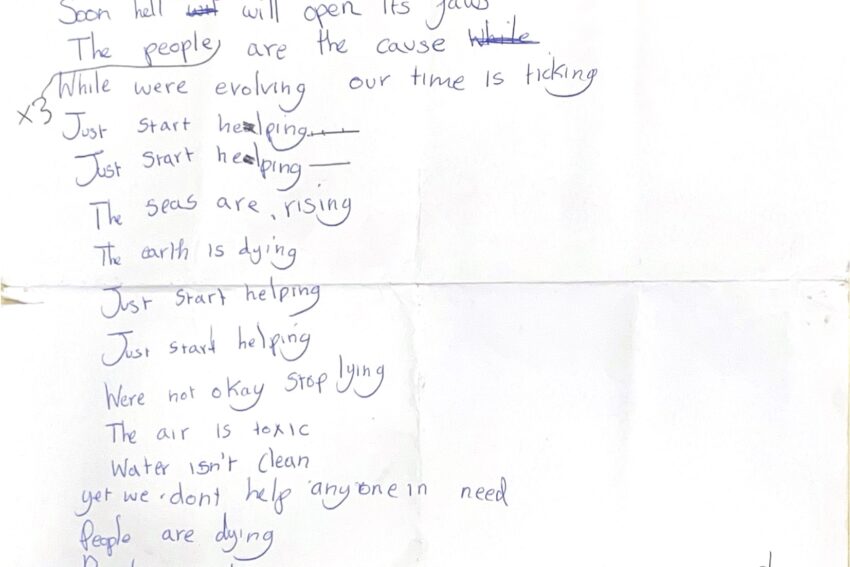 Soon hell will open its jaws
The people are the cause
While were evolving our time is ticking
x3
Just start helping
Just start helping
The seas are rising
The earth is dying
Just start helping
Just start helping
Were not okay stop lying
The air is toxic
Water isn't clean
yet we dont help anyone in need
People are dying